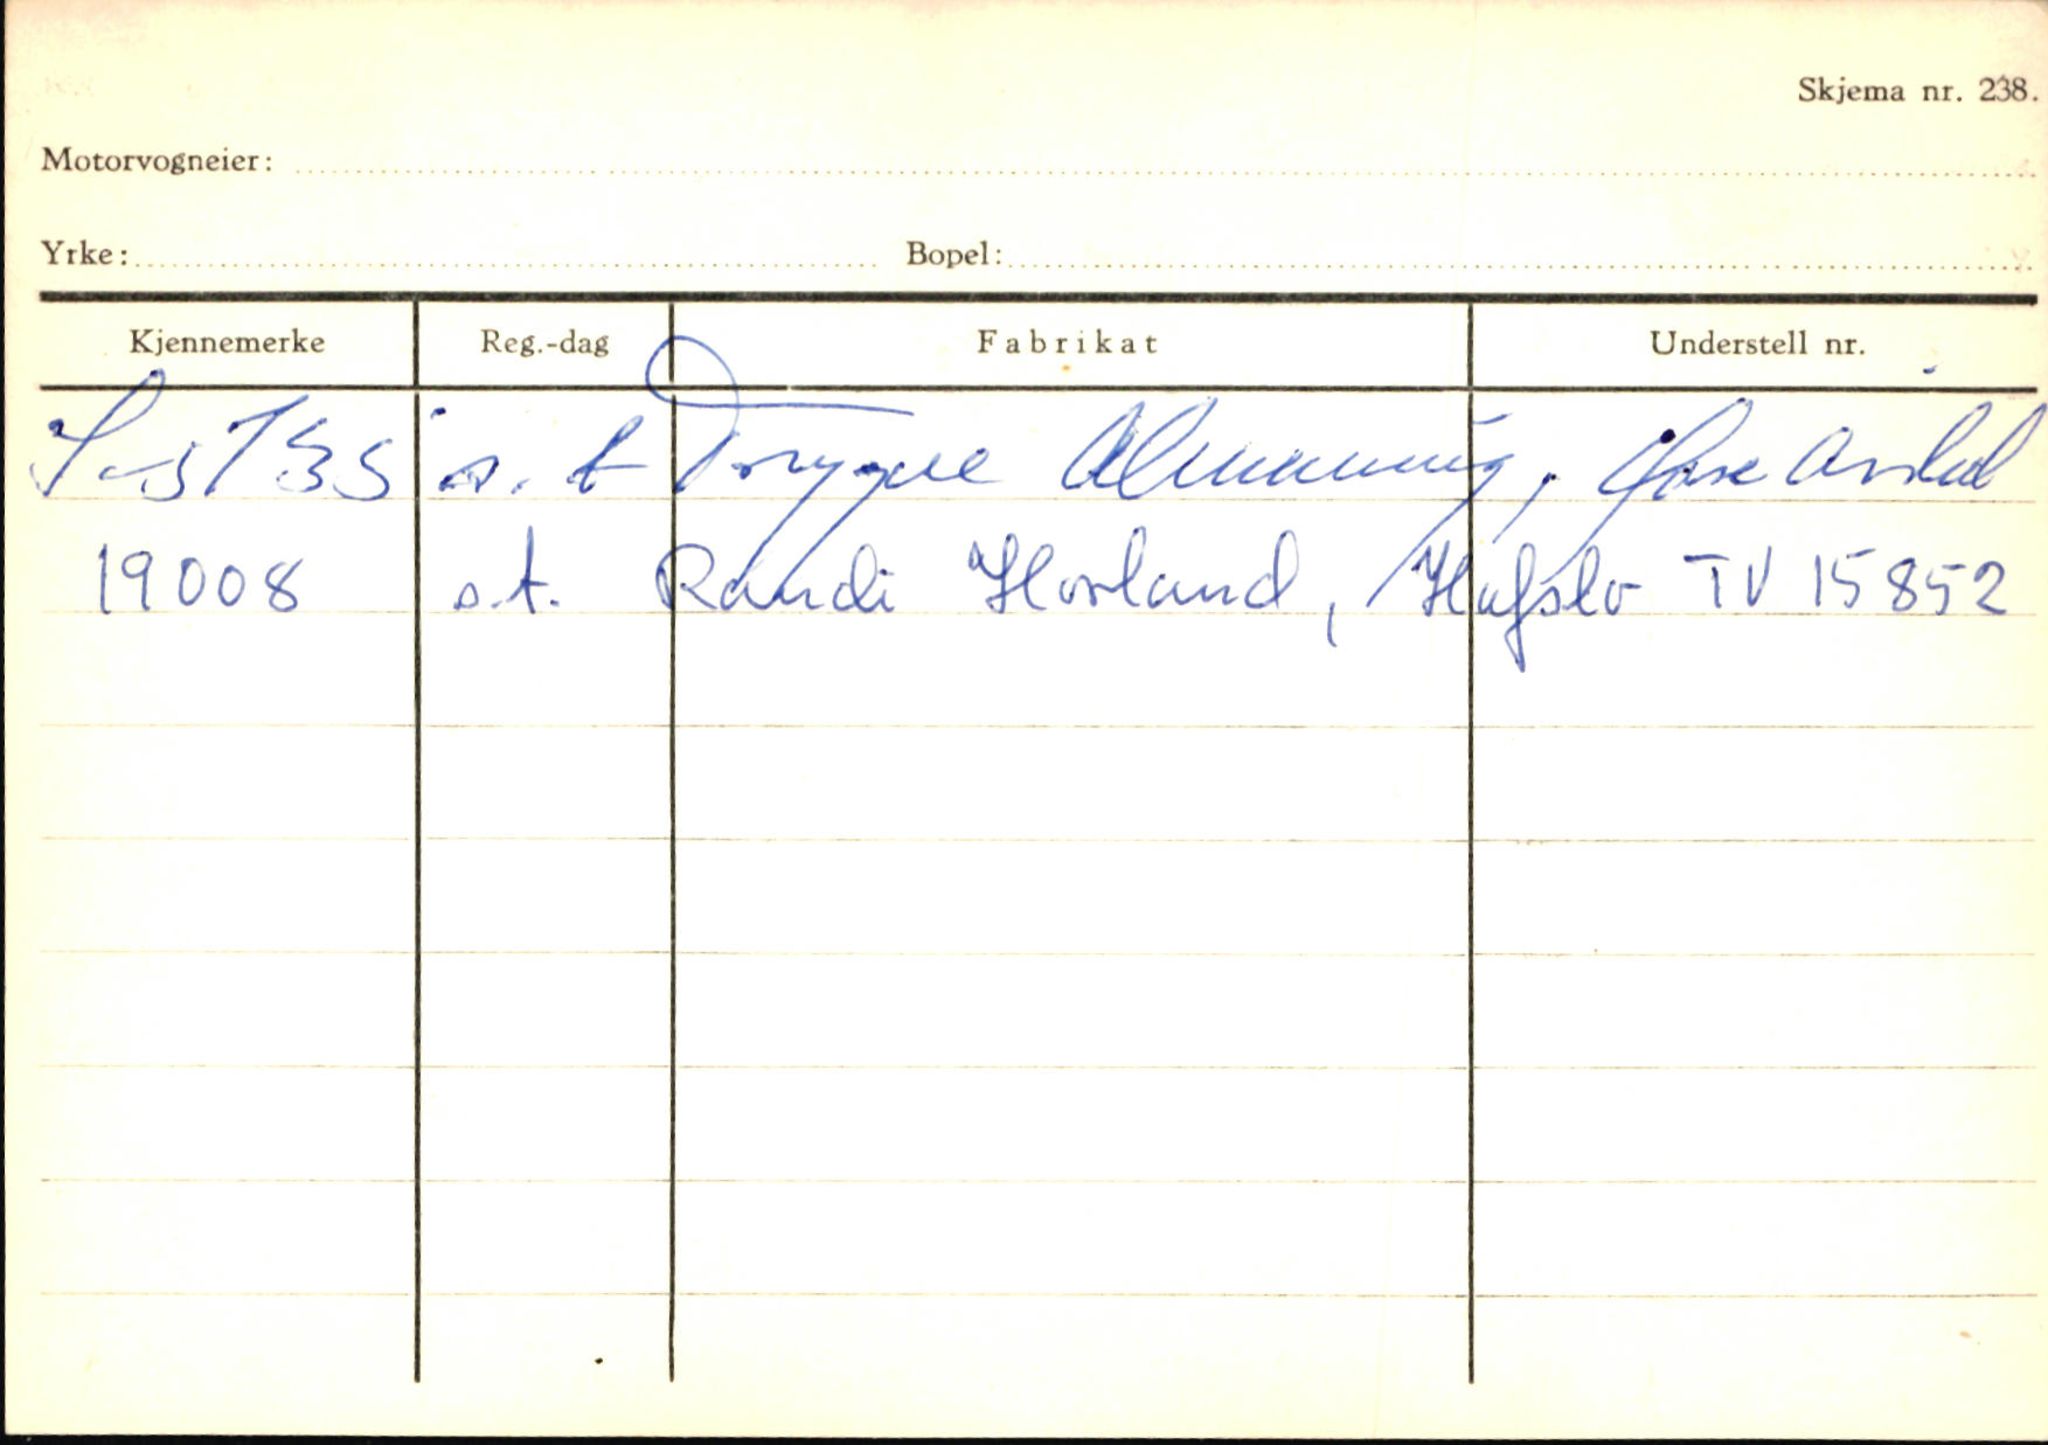 Skjema nr. 238.
Motorvogneier:
Yrke: Bopel:
Kjennemerke Reg.-dag Fabrikat Understell nr.
s. t Torgeir
19008 s.t. Randi Hovland, Hafslo TV 15852